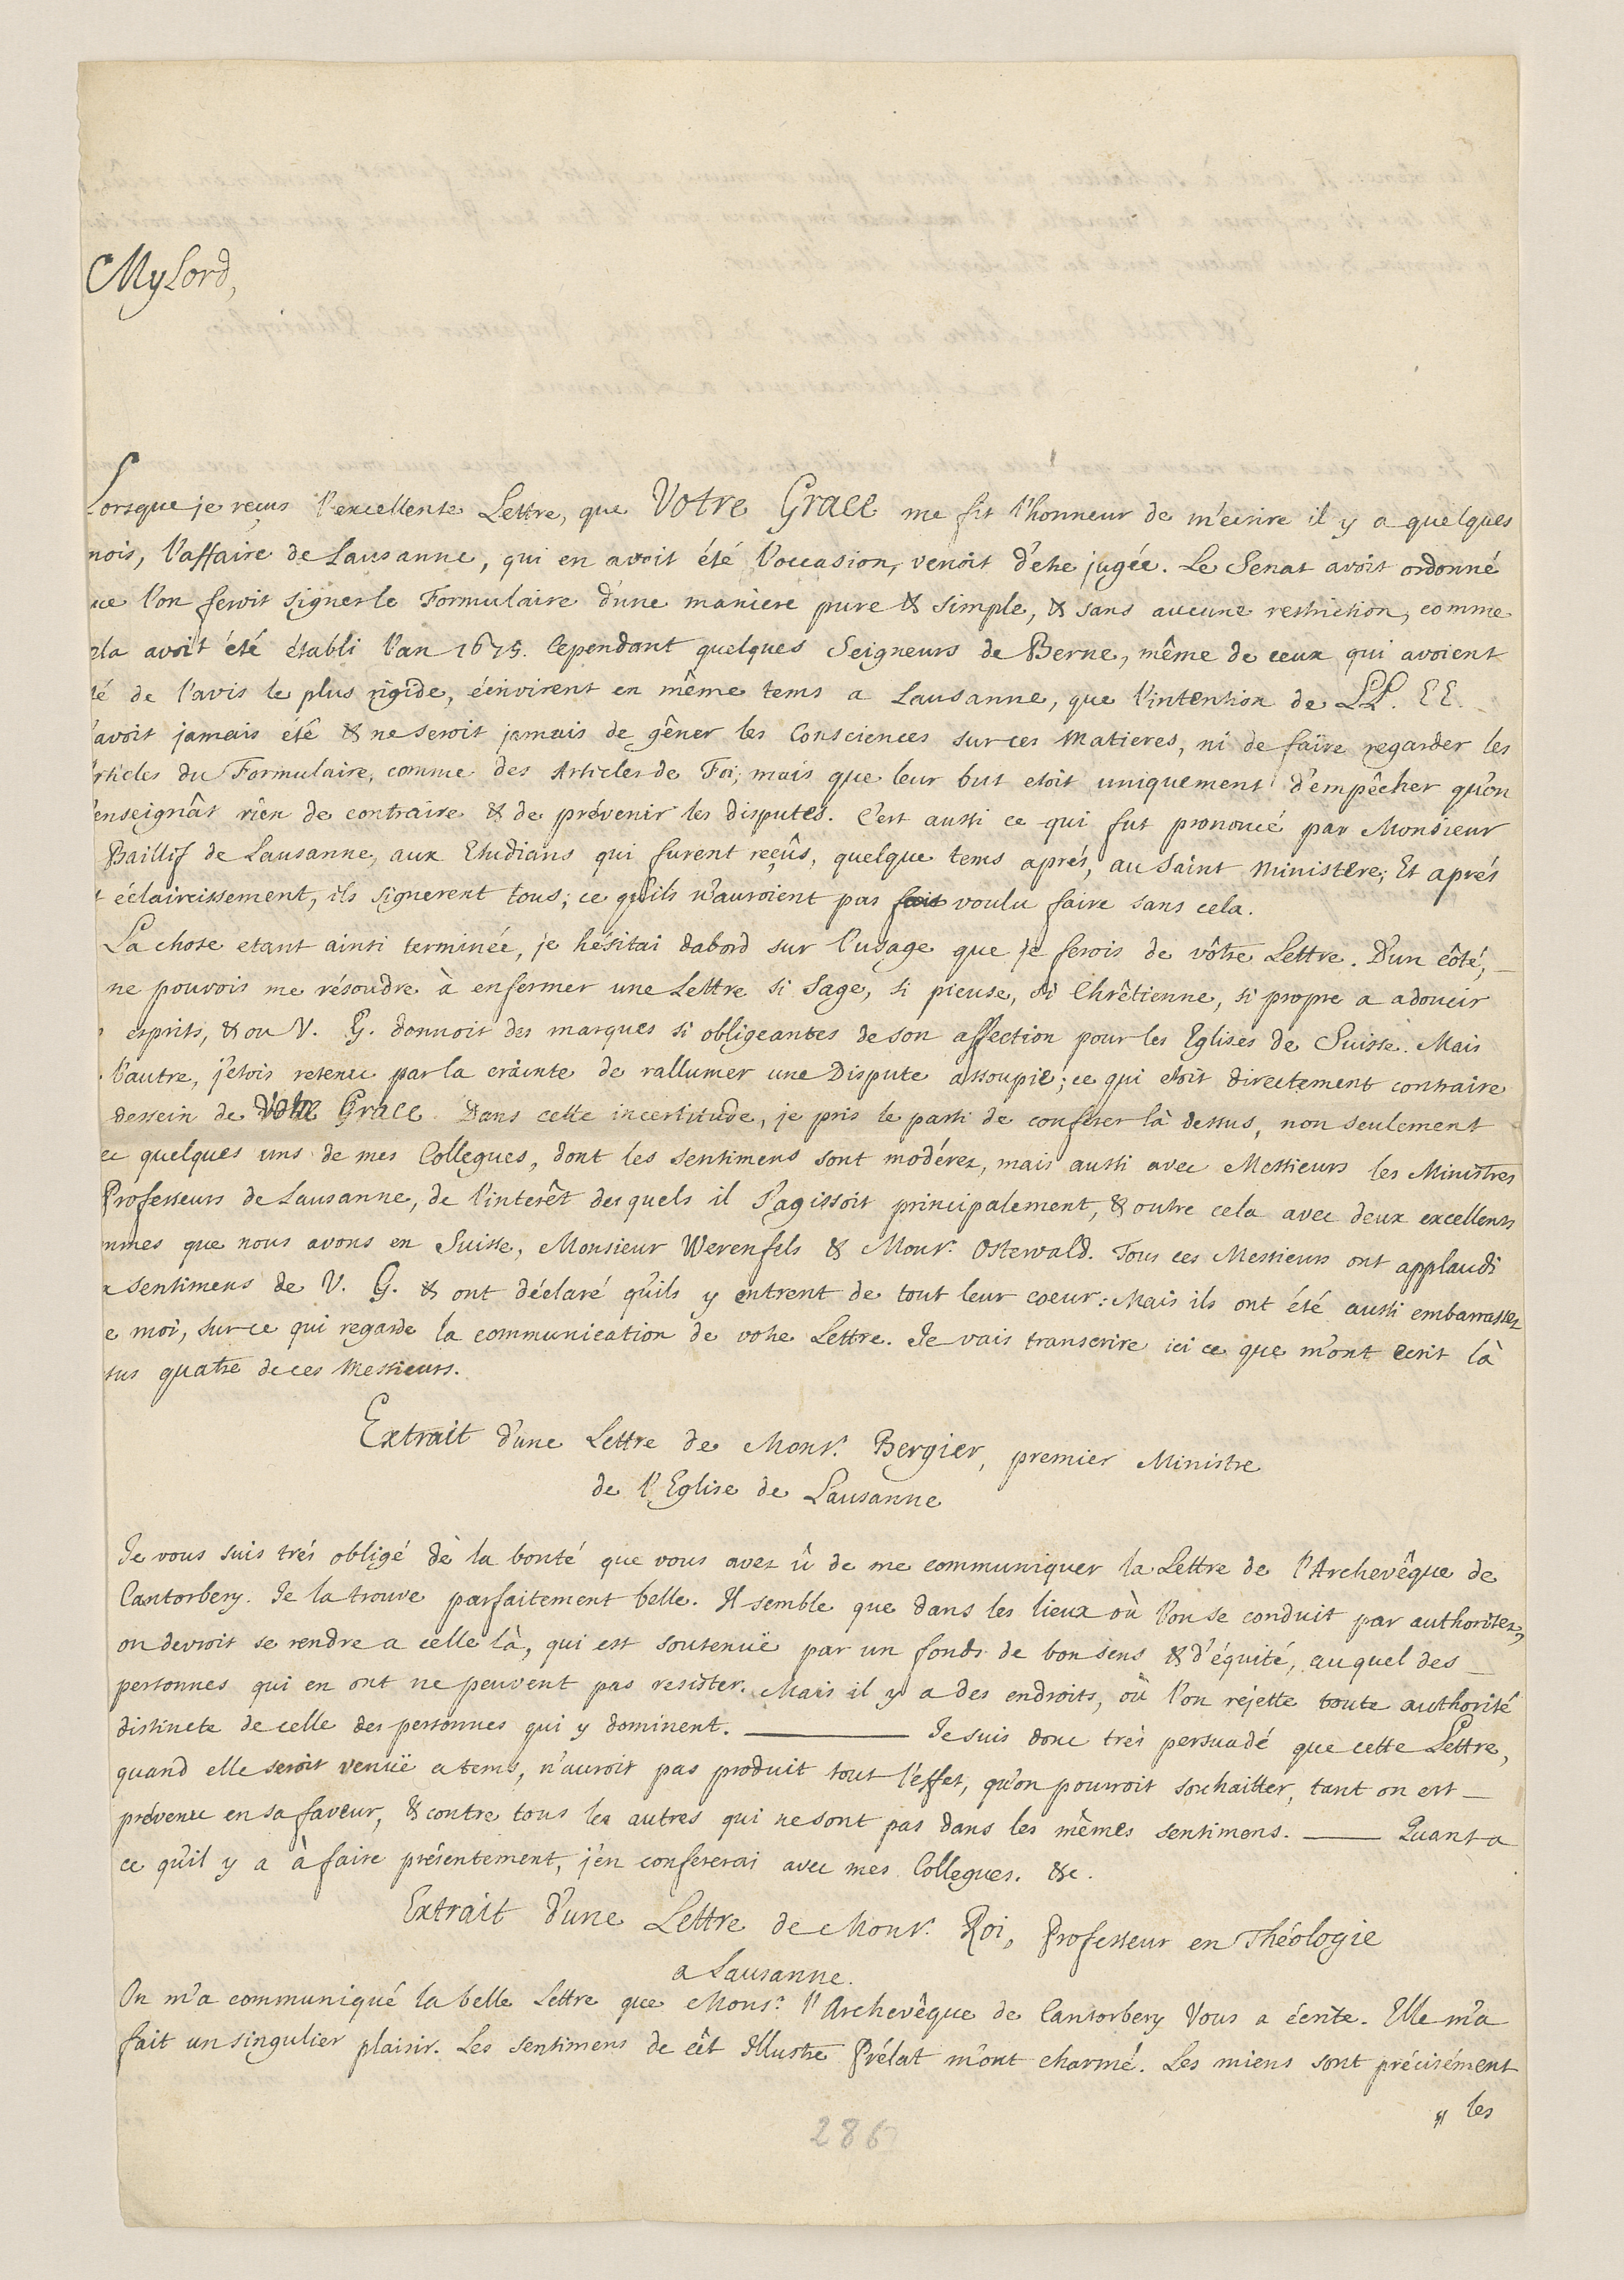 MyLord,
Lorsque je reçus l'excellente Lettre, que Votre Grace me fit l'honneur de m'ecrire il y a quelques
mois, l'affaire de Lausanne, qui en avoit été l'occasion, venoit d'etre jugée. Le Senat avoit ordonné
ue l'on feroit signer le Formulaire d'une maniere pure & simple, & sans aucune restriction, comme
ela avoit été établi l'an 1675. Cependant quelques Seigneurs de Berne, même de ceux qui avoient
té de l'avis le plus rigide, écrivirent en même tems a Lausanne, que l'intention de LL. EE.
'avoit jamais été & ne seroit jamais de gêner les Consciences sur ces Matieres, ni de faire regarder les
rticles du Formulaire, comme des Articles de Foi; mais que leur but etoit uniquement d'empêcher qu'on
'enseignât rien de contraire & de prévenir les disputes. C'est aussi ce qui fut prononcé par Monsieur
Baillif de Lausanne, aux Etudians qui furent reçûs, quelque tems aprés, au Saint Ministere; Et aprés
t éclaircissement, ils signerent tous; ce qu'ils n'auroient pas fait voulu faire sans cela.
La chose etant ainsi terminée, je hésitai dabord sur l'usage que je ferois de vôtre Lettre. D'un côté,
ne pouvois me résoudre à enfermer une Lettre si Sage, si pieuse, si Chrêtienne, si propre a adoucir
esprits, & ou V. G. donnoit des marques si obligeantes de son affection pour les Eglises de Suisse. Mais
l'autre, j'etois retenu par la crainte de rallumer une Dispute assoupie; ce qui etoit directement contraire
dessein de Votre Grace. Dans cette incertitude, je pris le parti de conferer là dessus, non seulement
ec quelques uns de mes Collegues, dont les sentimens sont modérez, mais aussi avec Messieurs les Ministres
Professeurs de Lausanne, de l'interêt desquels il s'agissoit principalement, & outre cela avec deux excellents
mmes que nous avons en Suisse, Monsieur Werenfels & Monsr. Ostervald. Tous ces Messieurs ont applaudi
x sentimens de V. G. & ont déclaré qu'ils y entrent de tout leur coeur: Mais ils ont été aussi embarrassez
e moi, sur ce qui regarde la communication de votre Lettre. Je vais transcrire ici ce que m'ont ecrit là
sus quatre de ces Messieurs.
Extrait d'une Lettre de Monsr. Bergier, premier Ministre
de l'Eglise de Lausanne
Je vous suis trés obligé de la bonté que vous avez û de me communiquer la Lettre de l'Archevêque de
Cantorbery. Je la trouve parfaitement belle. Il semble que dans les lieux où l'on se conduit par authoritez,
on devroit se rendre a celle là, qui est soutenuë par un fonds de bon sens & d'équité, auquel des
personnes qui en ont ne peuvent pas resister. Mais il y a des endroits, où l'on rejette toute authorité
distincte de celle des personnes qui y dominent. ——— Je suis donc trés persuadé que cette Lettre,
quand elle seroit venuë a tems, n'auroit pas produit tout l'effet, qu'on pourroit souhaitter, tant on est
prévenu en sa faveur, & contre tous les autres qui ne sont pas dans les mêmes sentimens. —— Quant a
ce qu'il y a à faire présentement, j'en confererai avec mes Collegues. &c.
Extrait d'une Lettre de Monsr. Roi, Professeur en Théologie
a Lausanne.
On m'a communiqué la belle Lettre que Monsr. l'Archevêque de Cantorbery Vous a écrite. Elle m'a
fait un singulier plaisir. Les sentimens de cêt Illustre Prélat m'ont charmé. Les miens sont précisément
" les
286